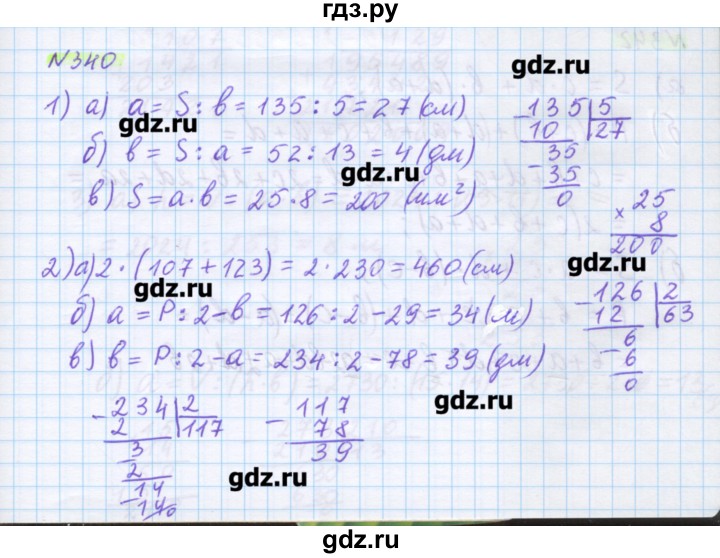 гдз.ру
N340
gdz.ru
1) а) a = S : b = 135 : 5 = 27 (см)
gdz.ru
б) b = S : a = 52 : 13 = 4 (дм)
gdz.ru
в) S = a · b = 25 · 8 = 200 (мм²)
- 135 | 5
10 27
35
- 35
0
25
× 8
200
gdz.ru
2) а) 2 · (107 + 123) = 2 · 230 = 460 (см)
gdz.ru
б) a = P : 2 - b = 126 : 2 - 29 = 34 (м)
в) b = P : 2 - a = 234 : 2 - 78 = 39 (дм)
- 126 | 2
12 63
6
- 6
0
gdz.ru
- 234 | 2
2 117
3
- 2
14
- 14
0
- 117
78
39
gdz.ru
gdz.ru